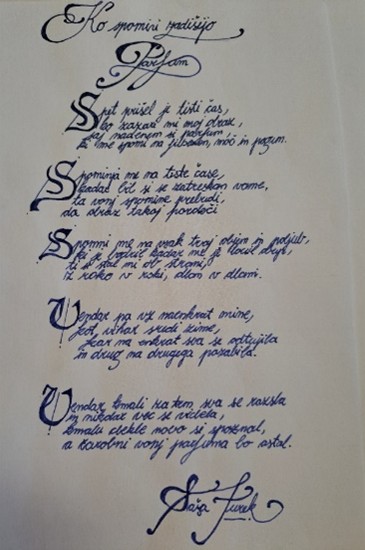 Ko spomini zadišijo
Parfum
Spet prišel je tisti čas,
ko zazari mi moj obraz,
saj nadenem si parfum
ki me spomni na ljubezen, moč in pogum.
Spominja me na tiste čase,
kadar bil si še zatreskan vame,
ta vonj spomine prebudi,
da obraz takoj pordeči
Spomni me na vsak tvoj objem in poljub,
ki je kadar me je
ti si stal mi ob strani,
iz roko v roki, dlan v dlani.
Vendar pa vse naenkrat mine,
kot vihar sredi zime,
kar na enkrat sva se odtujila
in drug na drugega pozabila.
Vendar kmalu za tem, sva se razšla
in nikdar več se videla,
kmalu dekle novo si spoznal,
a čarobni vonj parfuma bo ostal.
Saša Turek